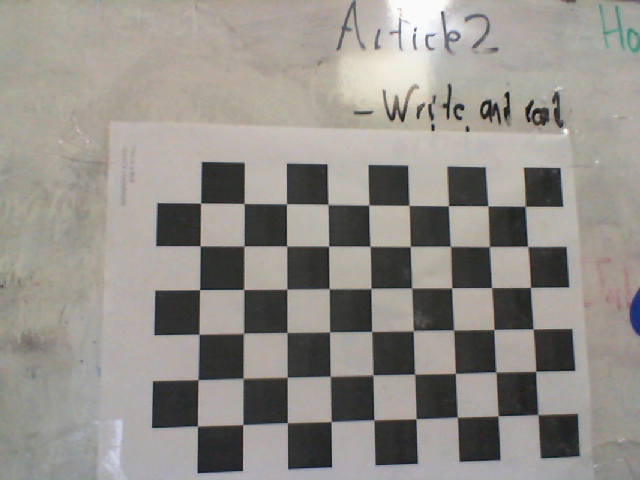 Article 2
Ho
- Write and read